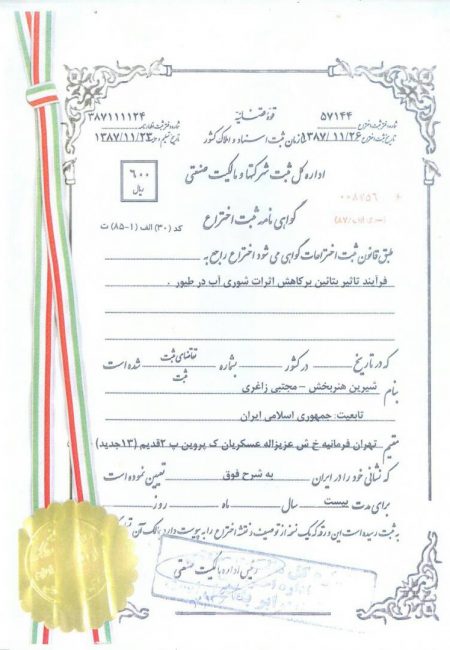 قوه قضائیه
سازمان ثبت اسناد و املاک کشور
شماره دفتر ثبت اختراع ۵۷۱۴۴
تاریخ ثبت اختراع ۱۳۸۷/۱۱/۲۶
۳۸۷۱۱۱۱۲۴
۱۳۸۷/۱۱/۲۳
۶۰۰
ریال
اداره کل ثبت شرکتها و مالکیت صنعتی
(سری الف/۸۷)
گواهی نامه ثبت اختراع
کد (۳۰) الف (۱-۸۵) ث
طبق قانون ثبت اختراعات گواهی می شود اختراع راجع به
فرآیند تاثیر بتائین بر کاهش اثرات شوری آب در طیور .
که در تاریخ در کشور بشماره تقاضای ثبت شده است
ثبت
بنام شیرین هنربخش – مجتبی زاغری
تابعیت: جمهوری اسلامی ایران
مقیم تهران فرمانیه خ ش عزیزاله عسکریان ک پروین پ ۲قدیم (۱۳جدید)
که نشانی خود را در ایران به شرح فوق تعیین نموده است
برای مدت بیست سال ماه روز
به ثبت رسیده است این ورقه که یک نسخه از توصیف و نقشه اختراع را به پیوست دارد بمالک آن
رئیس اداره مالکیت صنعتی